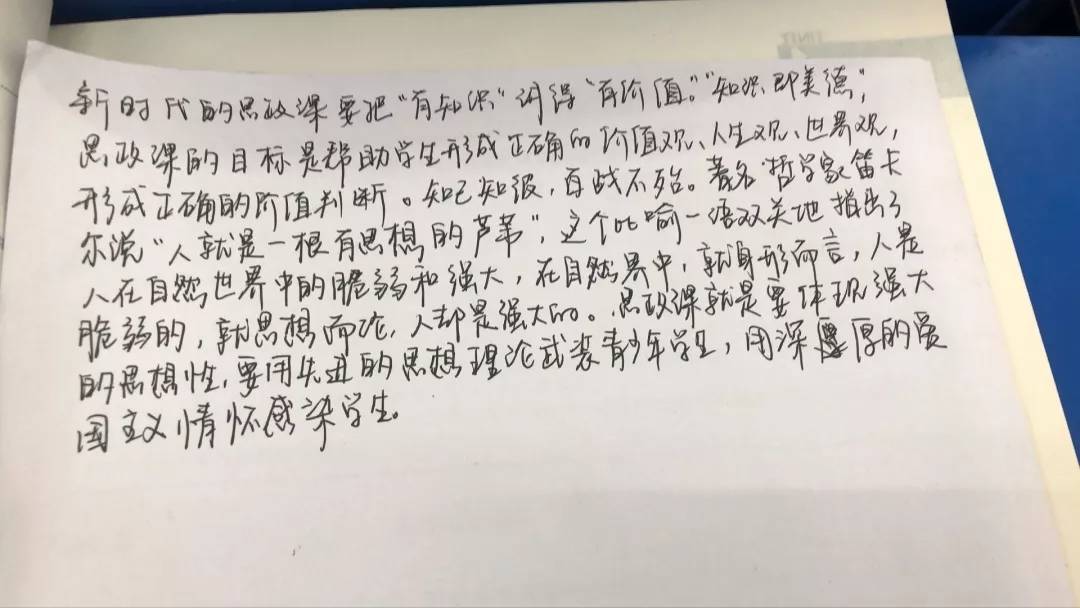 新时代的思政课要把“有知识”讲得“有价值。”“知识即美德”,
思政课的目标是帮助学生形成正确的价值观、人生观、世界观,
形成正确的价值判断。知己知彼,百战不殆。著名哲学家笛卡
尔说“人就是一根有思想的芦苇”,这个比喻一语双关地指出了
人在自然世界中的脆弱和强大,在自然界中,就身形而言,人是
脆弱的,就思想而论,人却是强大的。思政课就是要体现强大
的思想性,要用先进的思想理论武装青少年学生,用深厚的爱
国主义情怀感染学生。